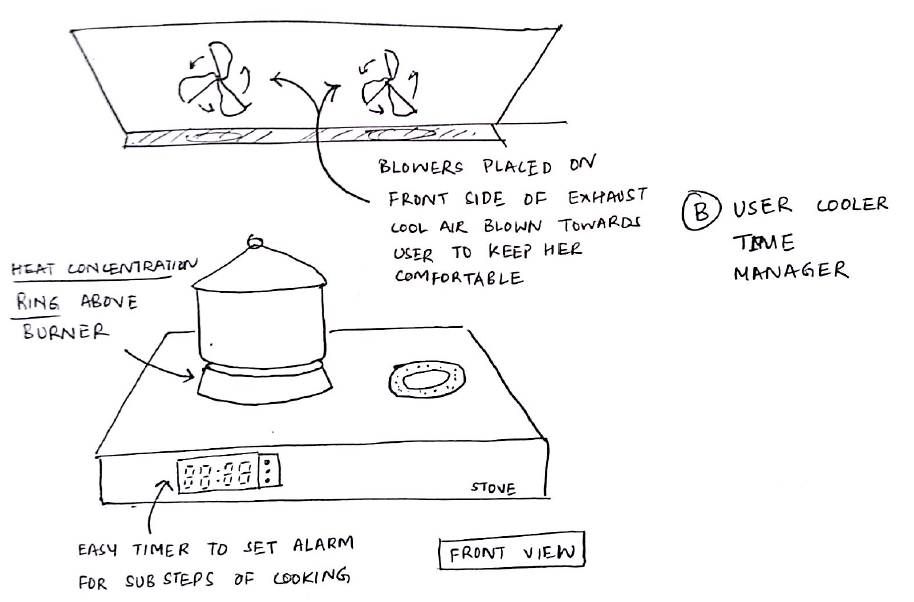 BLOWERS PLACED ON
FRONT SIDE OF EXHAUST
COOL AIR BLOWN TOWARDS
USER TO KEEP HER
COMFORTABLE
B USER COOLER
TIME
MANAGER
HEAT CONCENTRATION
RING ABOVE
BURNER
88:88
STOVE
EASY TIMER TO SET ALARM
FOR SUB STEPS OF COOKING
FRONT VIEW